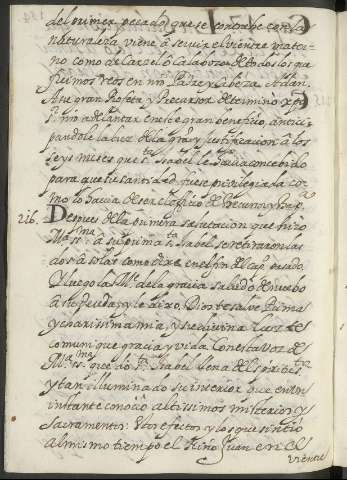 del primer pecado, que se contrahe con la
naturaleza, viene â seruir el vientre mater-
no como de Carcel o Calaboço de todos los que
fuimos reos en nrõ Padre y Cabeza Adan.
A este gran Profeta y Precursor determinò xpõ
S. nrõ adelantar en este gran beneficio, antici-
pandole la luz de la gra. y justificacion a los
seys meses que Sta. Isabel le hauia concebido
para que su santidad fuese privilegiada co-
mo lo hauia de ser el oficio de Precursor y Bap.ta
216. Despues de la primera salutacion que hizo
Ma. ssma. â su prima Sta. Isabel se retiraron las
dos â solas como dixe en el fin del cap. pasado.
Y luego la Me. de la gracia saludò de nuebo
â su deuda, y le dixo: Dios te salve Prima
y charissima mia, y su diuina luz te
comunique gracia y vida. Con esta voz de
Ma. ssma. quedò Sta. Isabel llena del Spiritu Sto.
y tan illuminado su interior que en vn
instante conociò altissimos misterios y
sacramentos. Estos efectos y los que sintio
al mismo tiempo el Niño Juan en el
vientre